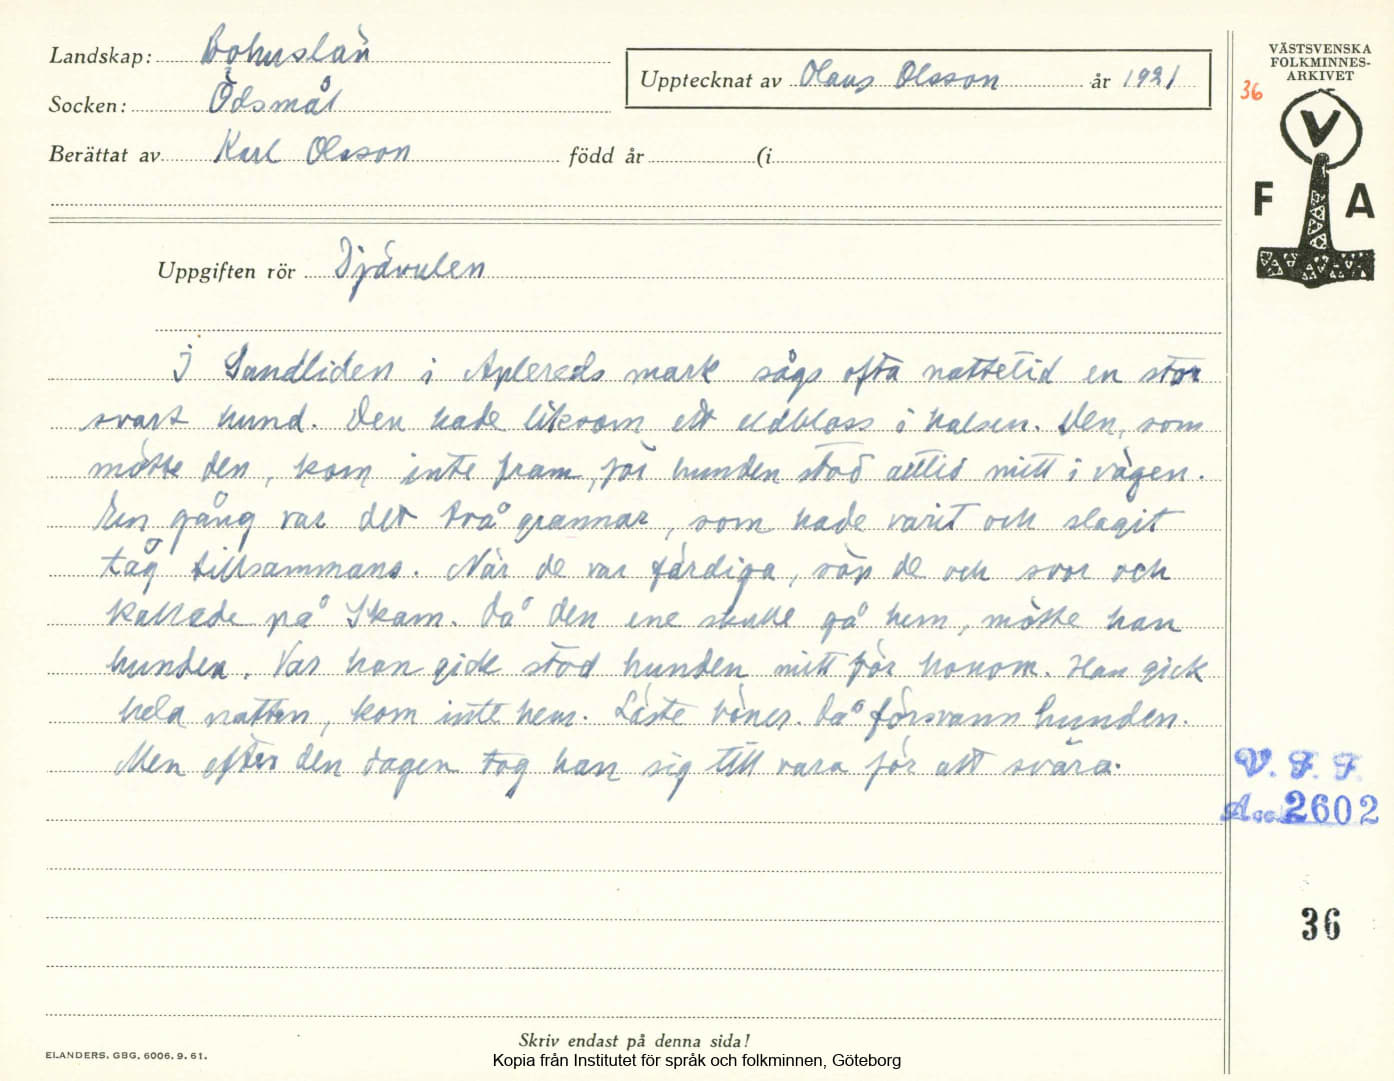 Landskap: Bohuslän
Socken: Ödsmål
Upptecknat av Olaus Olsson år 1921
Berättat av Karl Olsson född år (i
VÄSTSVENSKA
FOLKMINNES-
ARKIVET
36
V
F A
Uppgiften rör Djävulen
I Sandliden i Aplereds mark sågs ofta nattetid en stor
svart hund. Den hade liksom ett eldbloss i halsen. Den, som
mötte den, kom inte fram, för hunden stod alltid mitt i vägen.
En gång var det två grannar, som hade varit och slagit
tag tillsammans. När de var färdiga, söp de och svor och
kallade på Skam. Då den ene skulle gå hem, mötte han
hunden. Var han gick stod hunden mitt för honom. Han gick
hela natten, kom inte hem. Läste böner. Då försvann hunden.
Men efter den dagen tog han sig till vara för att svära.
V. F. F.
Acc. 2602
36
Skriv endast på denna sida!
ELANDERS, GBG, 6006. 9. 61.
Kopia från Institutet för språk och folkminnen, Göteborg